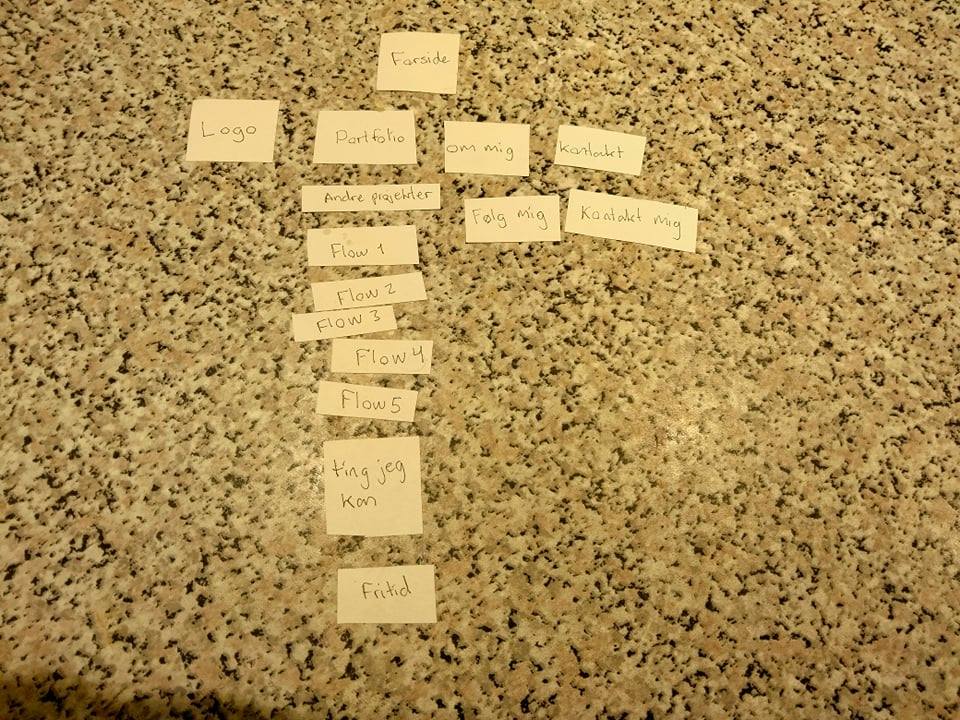 Forside
Logo
Portfolio
om mig
kontakt
Andre projekter
Følg mig
Kontakt mig
Flow 1
Flow 2
Flow 3
Flow 4
Flow 5
ting jeg
kan
Fritid